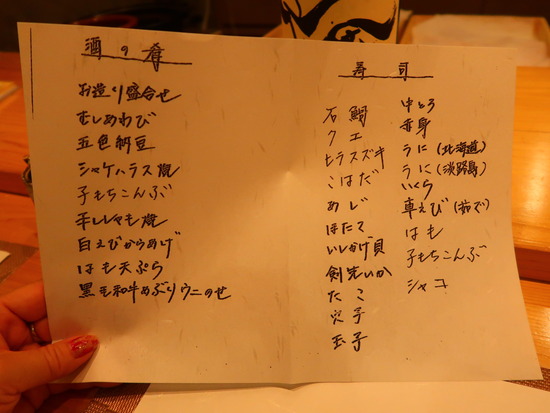 酒の肴
お造り盛合せ
むしあわび
五色納豆
シャケハラス焼
子もちこんぶ
子ししゃも焼
白えびからあげ
はも天ぷら
黒毛和牛あぶりウニのせ
寿司
石鯛
クエ
ヒラスズキ
こはだ
あじ
ほたて
いしかけ貝
剣先いか
たこ
穴子
玉子
中とろ
赤身
うに(北海道)
うに(淡路島)
いくら
車えび(茹で)
はも
子もちこんぶ
シャコ